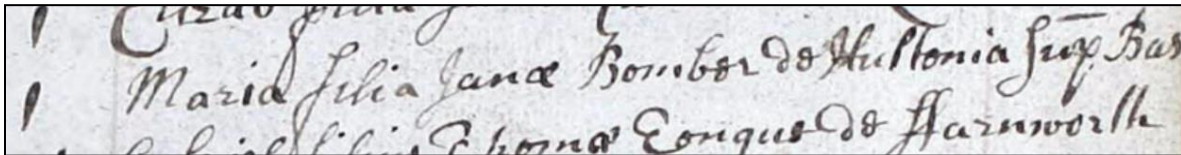 Elizab filia
1 Maria filia Janæ Bomber de Hultonia sup. Bas
filius Thomæ Tongue de Ffarnworth